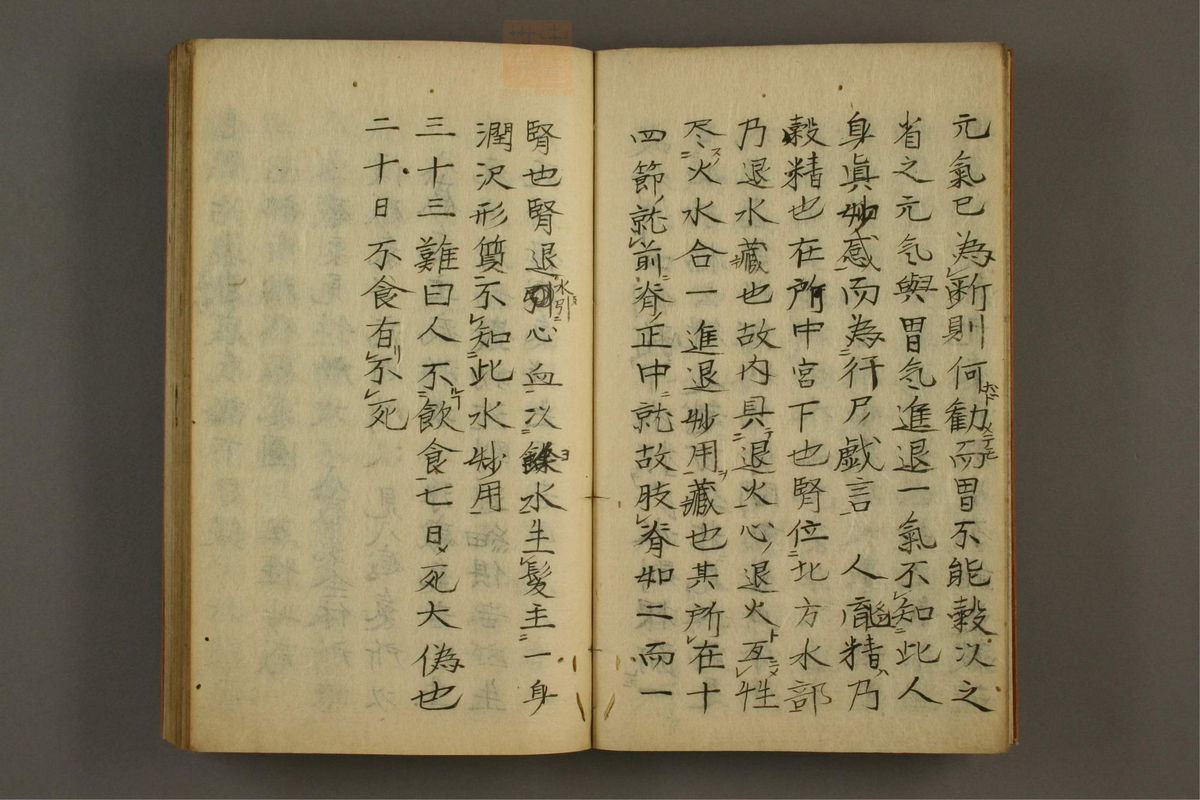 元氣已為新則何勸而胃不能穀以之
省之元气與胃气進退一氣不知此人
身眞妙感而為行尸戯言 人 精乃
穀精也在所中宮下也腎位北方水部
乃退水藏也故内具退火心退火互性
尽火水合一進退妙用藏也其所在十
四節就前脊正中就故肢脊如二而一
腎也腎退水引心血以餘水生髮主一身
潤沢形質不知此水妙用
三十三難曰人不飲食七日死大偽也
二十日不食有不死